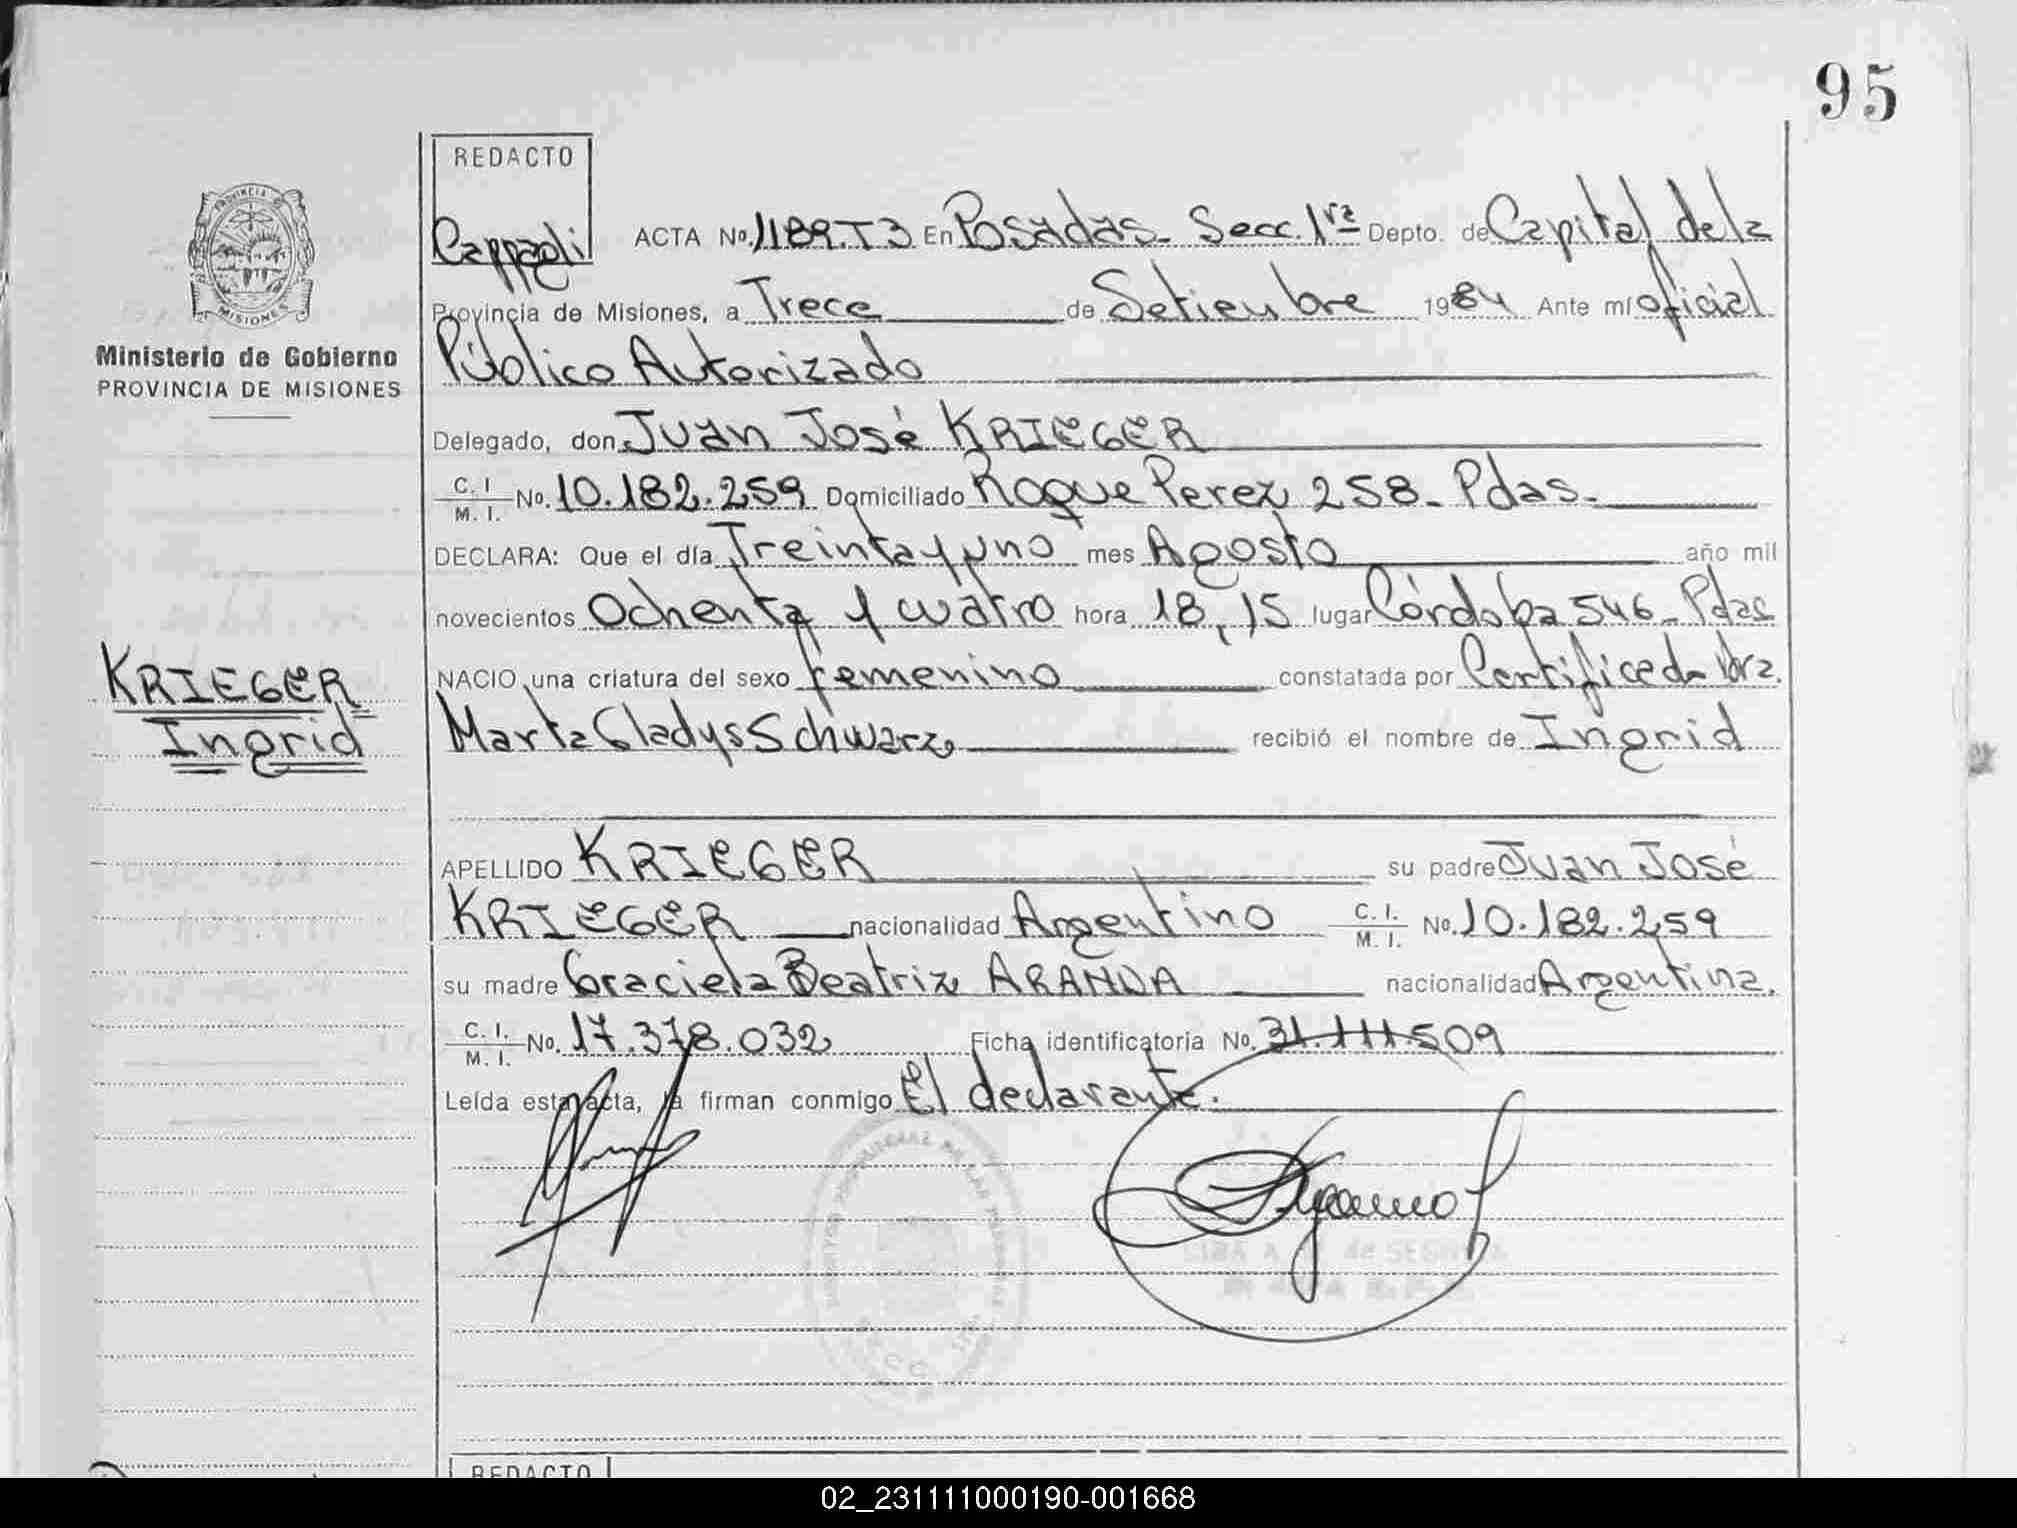 95
REDACTO
Cappagli
ACTA No. 1189.T3 En Posadas- Secc. 1ra Depto. de Capital dela
Provincia de Misiones, a Trece de Setiembre 1984 Ante mí oficial
Público Autorizado
Ministerio de Gobierno
PROVINCIA DE MISIONES
Delegado, don Juan José KRIEGER
C. I. M. I. No. 10.182.259 Domiciliado Roque Perez 258- Pdas-
DECLARA: Que el día Treinta y uno mes Agosto año mil
novecientos Ochenta y cuatro hora 18,15 lugar Córdoba 546- Pdas
KRIEGER
Ingrid
NACIO una criatura del sexo femenino constatada por Certificado Dra.
Marta Gladys Schwarz recibió el nombre de Ingrid
APELLIDO KRIEGER su padre Juan José
KRIEGER nacionalidad Argentino C. I. M. I. No. 10.182.259
su madre Graciela Beatriz ARANDA nacionalidad Argentina.
C. I. M. I. No. 17.378.032 Ficha identificatoria No. 31.111.509
Leída esta acta, la firman conmigo El declarante.
REDACTO
02_231111000190-001668